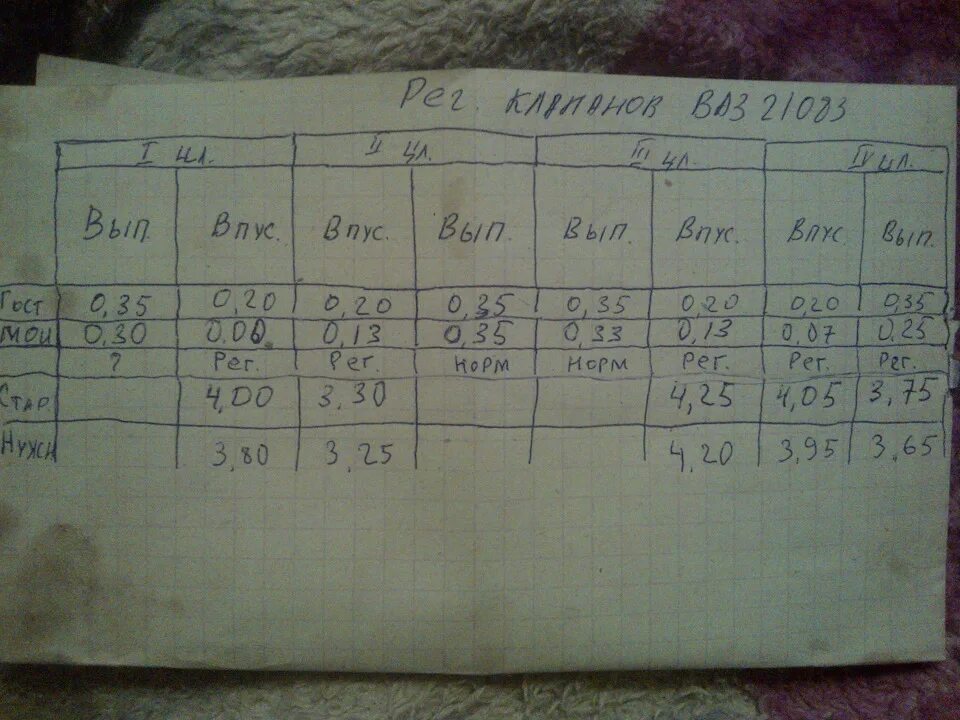 Рег. клапанов ВАЗ 21083
I цл. II цл. III цл. IV цл.
Вып. Впус. Впус. Вып. Вып. Впус. Впус. Вып.
Гост 0,35 0,20 0,20 0,35 0,35 0,20 0,20 0,35
мои 0,30 0,00 0,13 0,35 0,33 0,13 0,07 0,25
? Рег. Рег. норм норм Рег. Рег. Рег.
Стар. 4,00 3,30 4,25 4,05 3,75
Нужн 3,80 3,25 4,20 3,95 3,65